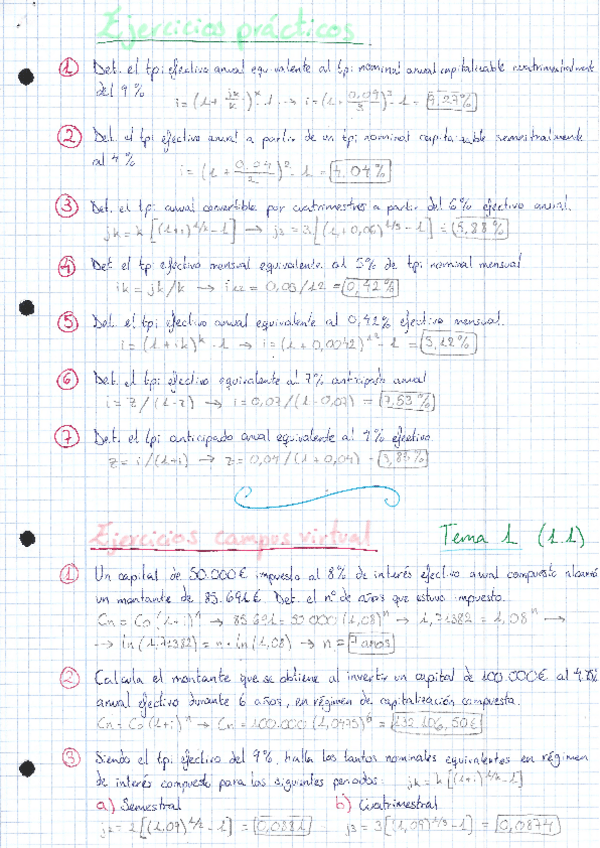 Ejercicios prácticos
① Det. el tpi efectivo anual equivalente al tpi nominal anual capitalizable cuatrimestralmente
del 9%
i = (1 + jk/k)^k - 1 → i = (1 + 0,09/3)^3 - 1 = 9,27%
② Det. el tpi efectivo anual a partir de un tpi nominal capitalizable semestralmente
al 4%
i = (1 + 0,04/2)^2 - 1 = 4,04%
③ Det. el tpi anual convertible por cuatrimestres a partir del 6% efectivo anual.
jk = k[(1+i)^1/k - 1] → j3 = 3[(1+0,06)^1/3 - 1] = 5,88%
④ Det el tp efectivo mensual equivalente al 5% de tpi nominal mensual
ik = jk/k → i12 = 0,05/12 = 0,42%
⑤ Det. el tpi efectivo anual equivalente al 0,42% efectivo mensual.
i = (1+ik)^k - 1 → i = (1+0,0042)^12 - 1 = 5,12%
⑥ Det. el tpi efectivo equivalente al 7% anticipado anual
i = z/(1-z) → i = 0,07/(1-0,07) = 7,53%
⑦ Det. el tpi anticipado anual equivalente al 4% efectivo.
z = i/(1+i) → z = 0,04/(1+0,04) = 3,85%
Ejercicios campus virtual Tema 1 (1.1)
① Un capital de 50.000€ impuesto al 8% de interés efectivo anual compuesto alcanzó
un montante de 85.691€. Det. el nº de años que estuvo impuesto.
Cn = Co(1+i)^n → 85.691 = 50.000(1,08)^n → 1,71382 = 1,08^n →
→ ln(1,71382) = n · ln(1,08) → n = 7 años
② Calcula el montante que se obtiene al invertir un capital de 100.000€ al 4,75%
anual efectivo durante 6 años, en régimen de capitalización compuesta.
Cn = Co(1+i)^n → Cn = 100.000(1,0475)^6 = 132.106,50€
③ Siendo el tpi efectivo del 9%, halla los tantos nominales equivalentes en régimen
de interés compuesto para los siguientes periodos: jk = k[(1+i)^1/k - 1]
a) Semestral b) Cuatrimestral
j2 = 2[(1,09)^1/2 - 1] = 0,0881 j3 = 3[(1,09)^1/3 - 1] = 0,0874